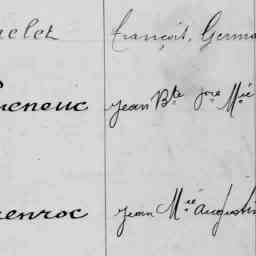 elet François, Germa
ueneuc Jean Bte José Mie
enroc Jean Mie Augustin